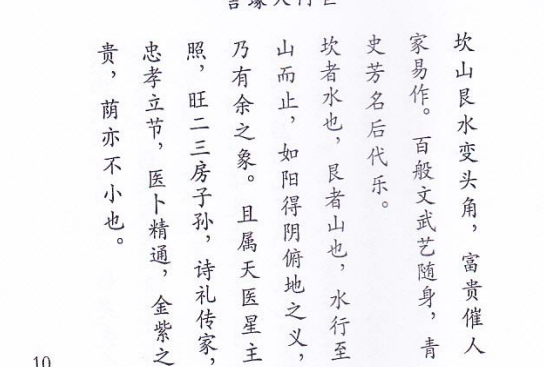 坎山艮水变头角，富贵催人
家易作。百般文武艺随身，青
史芳名后代乐。
坎者水也，艮者山也，水行至
山而止，如阳得阴俯地之义，
乃有余之象。且属天医星主
照，旺二三房子孙，诗礼传家，
忠孝立节，医卜精通，金紫之
贵，荫亦不小也。
10